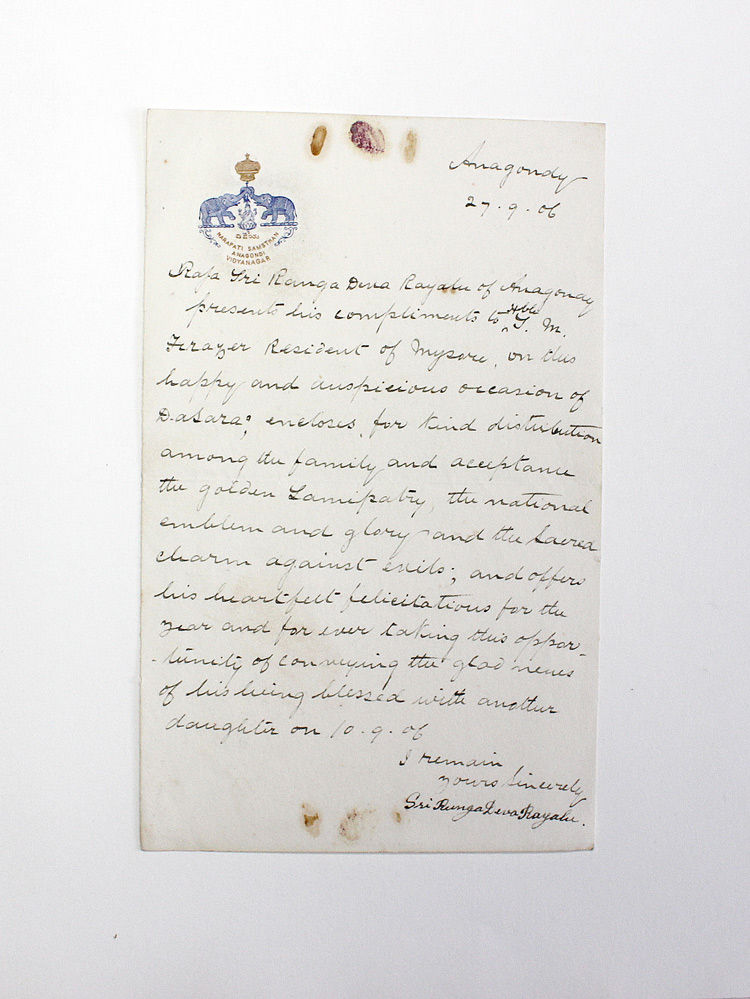 Anagondy
27.9.06
NARAPATI SAMSTHAN
ANAGONDI
VIDYANAGAR
Raja Sri Ranga Deva Rayalu of Anagondy
presents his compliments to Hble S. M.
Frazer Resident of Mysore, on this
happy and auspicious occasion of
Dasara; encloses, for kind distribution
among the family and acceptance
the golden Samipatry, the national
emblem and glory and the sacred
charm against evils; and offers
his heartfelt felicitations for the
year and for ever taking this oppor-
-tunity of conveying the glad news
of his being blessed with another
daughter on 10.9.06
I remain
yours sincerely
Sri Runga Deva Rayalu.